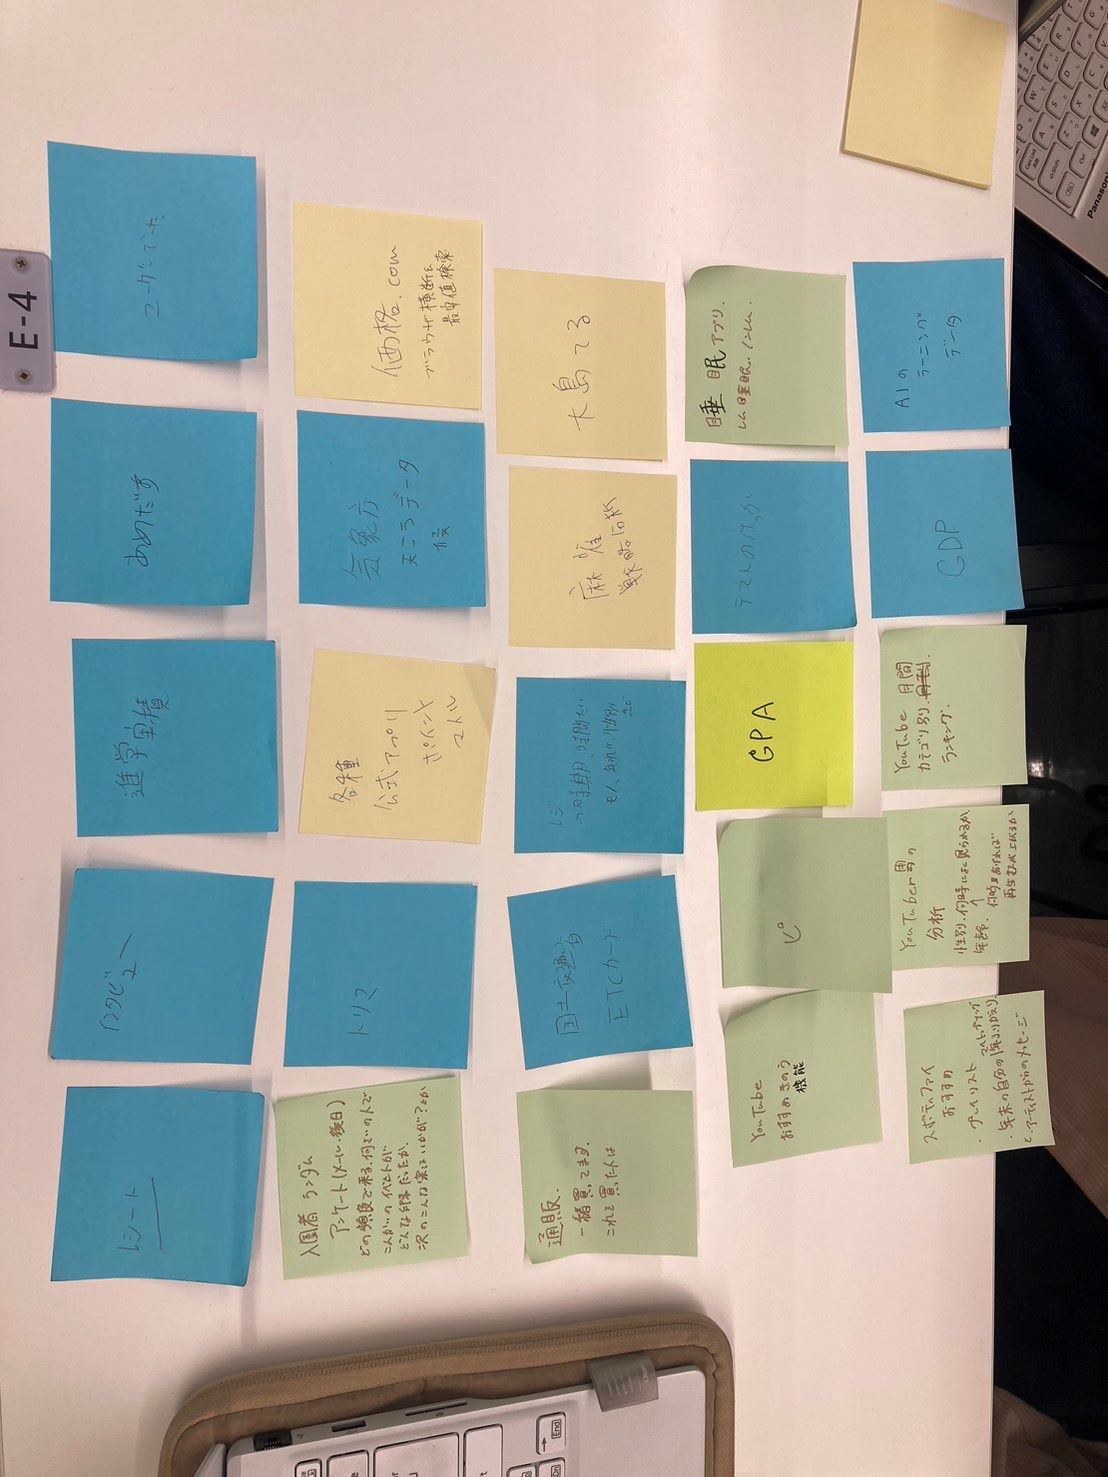 E-4
レシート
インタビュー
進学実績
あめだす
ユーザーでーた
入園者 ランダム
アンケート(メール・後日)
どの頻度で来る、何で の人で
こんかいの イベントが
どんな印象だったか、
次のこんな案はいかが?とか
トリマ
各種
公式アプリ
ポイント
マイル
気象庁
天こうデータ
候
価格.com
ブラウザ横断
最安値検索
通販.
一緒買ってます.
これを買った人は
国土交通省
ETCカード
レジ
の時期、時間たい
モノ、年れい、性別
など
麻雀
戦略分析
大島てる
YouTube
おすすめきのう
機能
ピ
GPA
テストのけっか
睡眠アプリ.
レム睡眠. ノンレム.
スポティファイ
おすすめ
・プレイリスト
・年末の自分の1年ふりかえり.
マイベストソング
と、アーティストからのメッセージ
YouTuber男の
分析
性別. 何時によく見られるか.
年齢. ↑
何時にあげれば
再生数が上がるか
YouTube 月間
カテゴリ別.
ランキング.
GDP
AIの
ラーニング
データ
Home
End
Panasonic